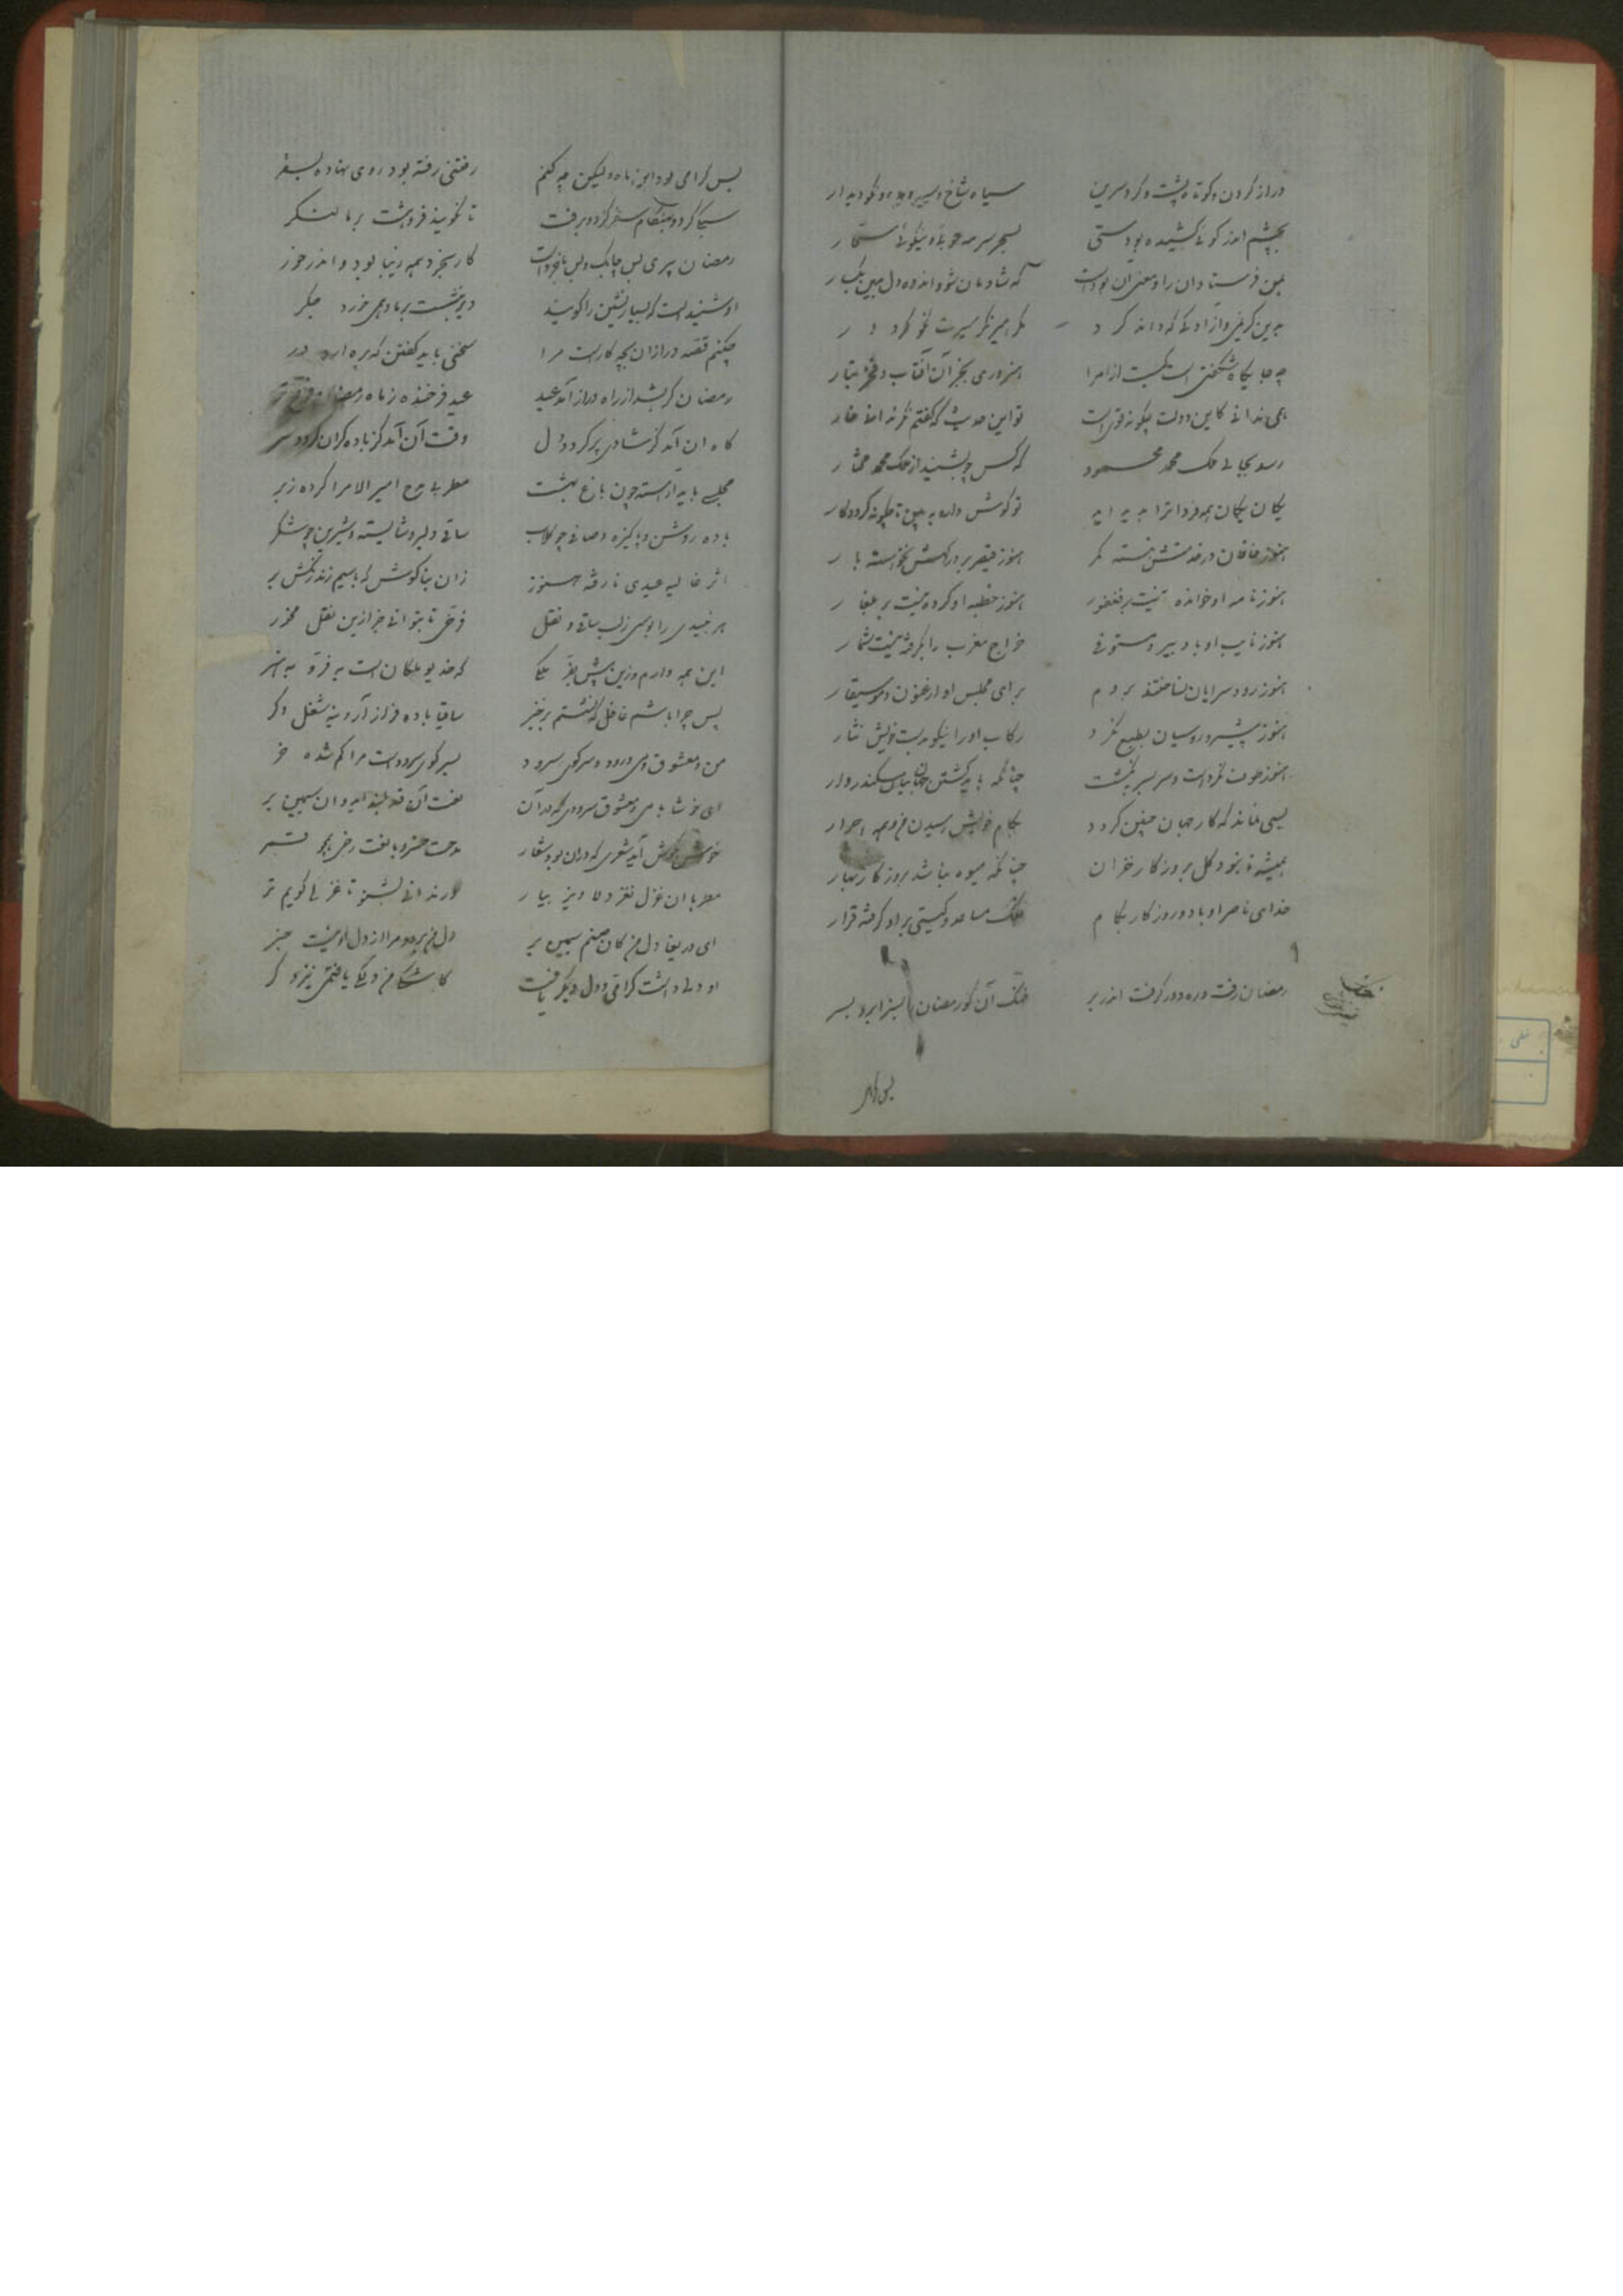 دراز گردن و کوتاه پشت و گرد سرین سیاه شاخ و سیه دیده و نکو دیدار
بچشم اندر گوئی کشیده بودستی بسحر سرمه خوبی و نیکوئی سحار
بمن فرستاد آن را و معنی آن بودست که شادمان شو و انده دل مبین یکبار
بدین کریمی و آزادگی که داند کرد مگر امیر نکو سیرت نکو کردار
چه جایگاه شگفتی است کیست از امرا هنروری بجز آن آفتاب و فخر تبار
همی ندانی کاین دولت چگونه قوی است تو این حدیث که گفتم نگر نداری خوار
رسد بجائی ملک محمد محمود که کس چو نشنید از ملک محمد مختار
یکان یکان همه فردا ترا پدید آید تو گوش دار ببین تا چگونه گردد کار
هنوز خاقان در خدمتش نبسته کمر هنوز قیصر بر درگهش نخواسته بار
هنوز نامه او خوانده نیست بر فغفور هنوز خطبه او کرده نیست بر بلغار
هنوز نایب او با دبیر و مستوفی خراج مغرب را برگرفته نیست شمار
هنوز رود سرایان نساختند بروم برای مجلس او ارغنون و موسیقار
هنوز پیشرو روسیان بطبع نکرد رکاب او را نیکو بدست خویش نثار
هنوز حرب نکرده‌است و سر بسر نگذشت چنانکه باید گشتن جهان بسان سکندر وار
بسی نماند که کار جهان چنین گردد بکام خویش رسیدن من و همه احرار
همیشه تا نبود گل بروزگار خزان چنانکه میوه نباشد بروزگار بهار
خدای ناصر او باد و روزگار بکام فلک مساعد و گیتی برو گرفته قرار
رمضان رفت و رهی دور گرفت اندر بر خنک آن کو رمضان را بسزا برد بسر
بس گرامی
بس گرامی بود این ماه ولیکن چه کنم رفتنی رفته بود روی نهاده بسفر
سبکی کرد و بهنگام سفر کرد و برفت تا نگویند فروهشت بر ما لنگر
رمضان پیری بس چابک و بس باخرد است کار بخرد همه زیبا بود و اندر خور
او شنیدست که بسیار نشین را گویند دیر بنشست بر ما و همی خورد جگر
چکنم قصه دراز آن بچه کارست مرا سخنی باید گفتن که بره آرد در
رمضان گر بشد از راه فراز آمد عید عید فرخنده ز ماه رمضان فرخ تر
گاه آن آمد کز شادی پر گردد دل وقت آن آمد کز باده گران گردد سر
مجلسی باید آراسته چون باغ بهشت مطربی مدح امیر الامرا کرده زبر
باده روشن و پاکیزه و صافی چو گلاب ساقی دلبر و شایسته و شیرین چو شکر
اثر غالیه عیدی نا رفته هنوز زان بناگوش که با سیم زند رنگش بر
هر نبیدی را بوسی ز لب ساقی و نقل فرخی تا بتوانی جز ازین نقل مخور
این همه دارم و زین بیش بفر ملکی که خدیو ملکان است به فر و به هنر
پس چرا باشم غافل که نشستم برخیز ساقیا باده فراز آر و بنه شغل دگر
من و معشوق و می و رود و سر کوی سرود بسر کوی سرودست مرا گم شده خر
ای خوشا با می و معشوق سرودی که در آن نعت آن قد بلند آید و آن سیمین بر
خوش بگوش آید شعری که در آن بود شعار مدحت خسرو با نعت رخی همچو قمر
مطربا آن غزل نغز دلاویز بیار ور ندانی بشنو تا غزلی گویم تر
ای دریغا دل من کان صنم سیمین بر دل من برد و مرا از دل او نیست خبر
او دلی داشت گرامی و دل دیگر یافت کاشکی من دلکی یافتمی نیز دگر